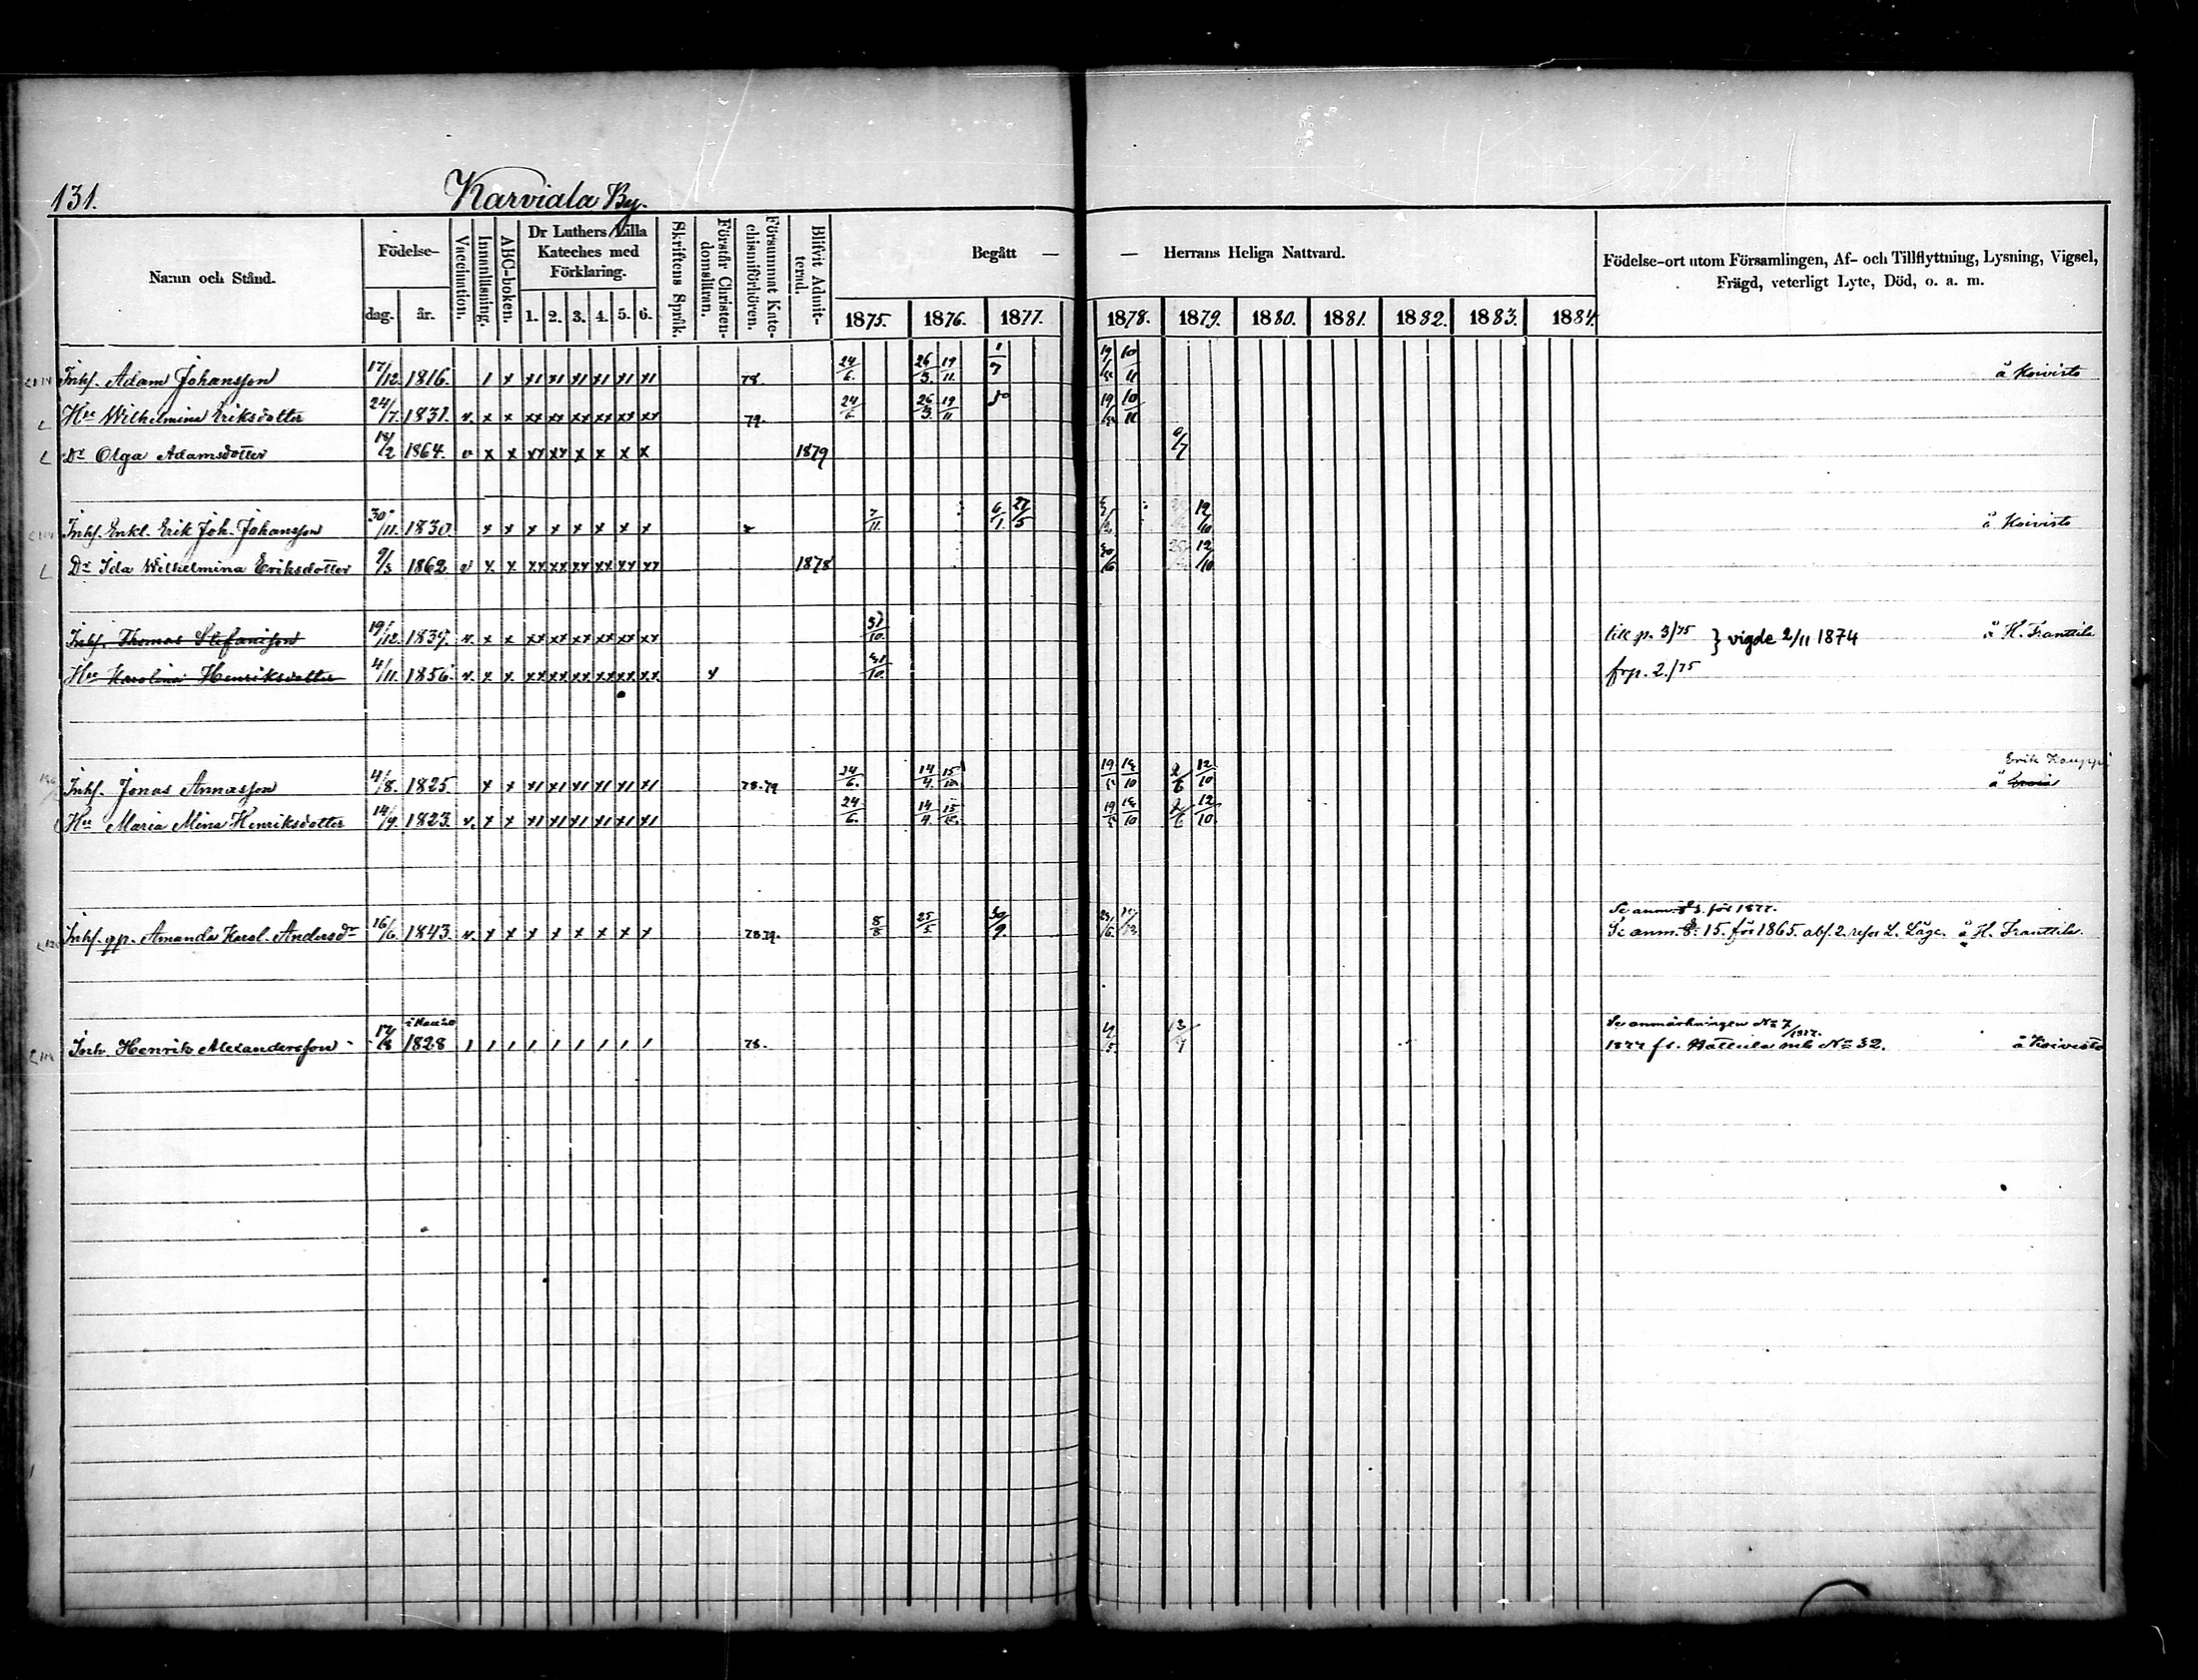 131. Karviala By.
Namn och Stånd. Födelse- dag. år. Vaccination. Innanläsning. ABC-boken. Dr Luthers Lilla Kateches med Förklaring. 1. 2. 3. 4. 5. 6. Skriftens Språk. Förstår Christendomsläran. Försummat Katechismiförhören. Blifvit Admitterad. Begått — — Herrans Heliga Nattvard. 1875. 1876. 1877. 1878. 1879. 1880. 1881. 1882. 1883. 1884. Födelse-ort utom Församlingen, Af- och Tillflyttning, Lysning, Vigsel, Frägd, veterligt Lyte, Död, o. a. m.
Inhs. Adam Johansson 17/12 1816. 1 x x1 x1 x1 x1 x1 x1 78. 24/6. 26/3. 19/11. 1/7 10/11 å Koivisto
Hu Wilhelmina Eriksdotter 24/7. 1831. v. x x xx xx xx xx xx xx 79. 24/6 26/3. 19/11 10/11
Dr Olga Adamsdotter 18/2 1864. v x x xx xx x x x x 1879
Inhs. Enkl. Erik Joh. Johansson 30/11. 1830 x x x x x x x x 7/11. 6/1. 27/5 12/10 å Koivisto
Dr Ida Wilhelmina Eriksdotter 9/3 1862 v x x xx xx xx xx xx xx 1878 30/6 12/10
Inhs. Thomas Stefansson 19/12. 1839. v. x x xx xx xx xx xx xx 31/10. till p. 3/75 } vigde 2/11 1874 å H. Franttila
Hu Karolina Henriksdotter 4/11. 1856. v. x x xx xx xx xx xx xx 31/10. frp. 2./75
Erik Kauppi
Inhs. Jonas Annasson 4/8. 1825. x x x1 x1 x1 x1 x1 x1 78.79 24/6. 14/4. 15/10. 12/10 å
Hu Maria Mina Henriksdotter 14/9. 1823. v. x x x1 x1 x1 x1 x1 x1 24/6. 14/4. 12/10.
Se anm. 83. för 1877.
Inhs. qp. Amanda Karol. Andersdr 16/6. 1843. v. x x x x x x x x 78.79. 8/8 25/5 30/9. Se anm. 15. för 1865. abs. 2. å H. Franttila.
Se anmärkningen No 7/1877.
Inh. Henrik Alexandersson 1828 1 1 1 1 1 1 1 1 1 78. 1877 fr. Hattula mb No 32. å Koivisto